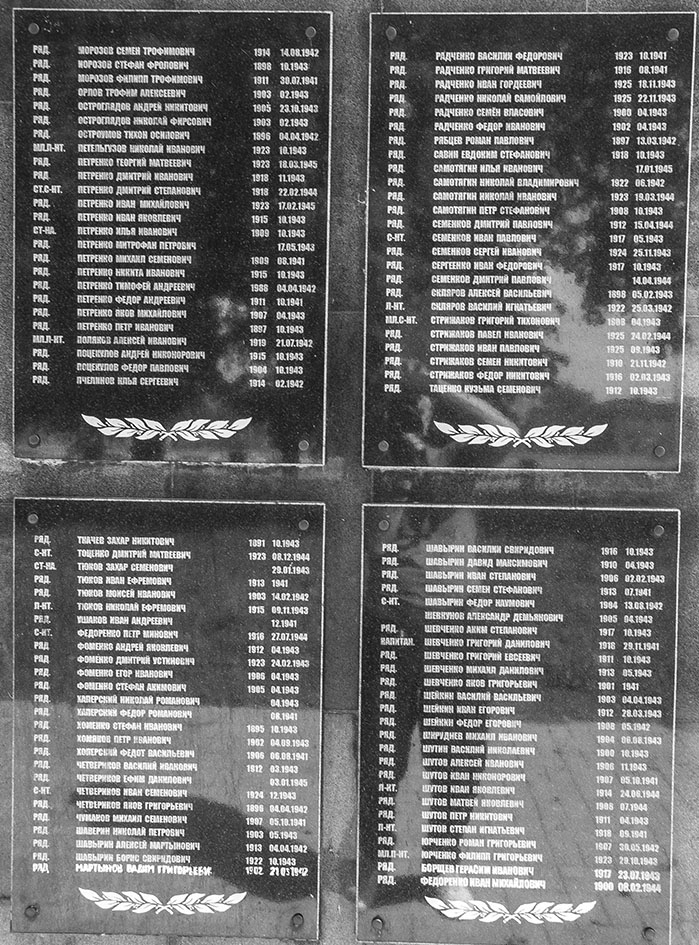 РЯД. МОРОЗОВ СЕМЕН ТРОФИМОВИЧ 1914 14.08.1942
РЯД. МОРОЗОВ СТЕФАН ФРОЛОВИЧ 1898 10.1943
РЯД. МОРОЗОВ ФИЛИПП ТРОФИМОВИЧ 1911 30.07.1941
РЯД. ОРЛОВ ТРОФИМ АЛЕКСЕЕВИЧ 1903 02.1943
РЯД. ОСТРОГЛЯДОВ АНДРЕЙ НИКИТОВИЧ 1905 23.10.1943
РЯД. ОСТРОГЛЯДОВ НИКОЛАЙ ФИРСОВИЧ 1903 02.1943
РЯД. ОСТРОУМОВ ТИХОН ОСИПОВИЧ 1896 04.04.1942
МЛ.Л-НТ. ПЕТЕЛЬГУЗОВ НИКОЛАЙ ИВАНОВИЧ 1923 10.1943
РЯД. ПЕТРЕНКО ГЕОРГИЙ МАТВЕЕВИЧ 1923 18.03.1945
РЯД. ПЕТРЕНКО ДМИТРИЙ ИВАНОВИЧ 1918 11.1943
СТ.С-НТ. ПЕТРЕНКО ДМИТРИЙ СТЕПАНОВИЧ 1918 22.02.1944
РЯД. ПЕТРЕНКО ИВАН МИХАЙЛОВИЧ 1923 17.02.1945
РЯД. ПЕТРЕНКО ИВАН ЯКОВЛЕВИЧ 1915 10.1943
СТ-НА. ПЕТРЕНКО ИЛЬЯ ИВАНОВИЧ 1909 10.1943
РЯД. ПЕТРЕНКО МИТРОФАН ПЕТРОВИЧ 17.05.1943
РЯД. ПЕТРЕНКО МИХАИЛ СЕМЕНОВИЧ 1909 08.1941
РЯД. ПЕТРЕНКО НИКИТА ИВАНОВИЧ 1915 10.1943
РЯД. ПЕТРЕНКО ТИМОФЕЙ АНДРЕЕВИЧ 1988 04.04.1942
РЯД. ПЕТРЕНКО ФЕДОР АНДРЕЕВИЧ 1911 10.1941
РЯД. ПЕТРЕНКО ЯКОВ МИХАЙЛОВИЧ 1907 04.1943
РЯД. ПЕТРЕНКО ПЕТР ИВАНОВИЧ 1897 10.1943
МЛ.Л-НТ ПОЛЯКОВ АЛЕКСЕЙ ИВАНОВИЧ 1919 21.07.1942
РЯД. ПОЦЕКУЛОВ АНДРЕЙ НИКОНОРОВИЧ 1915 10.1943
РЯД. ПОЦЕКУЛОВ ФЕДОР ПАВЛОВИЧ 1904 10.1943
РЯД. ПЧЕЛИНОВ ИЛЬЯ СЕРГЕЕВИЧ 1914 02.1942
РЯД. РАДЧЕНКО ВАСИЛИЙ ФЕДОРОВИЧ 1923 10.1941
РЯД. РАДЧЕНКО ГРИГОРИЙ МАТВЕЕВИЧ 1916 08.1941
РЯД. РАДЧЕНКО ИВАН ГОРДЕЕВИЧ 1925 18.11.1943
РЯД. РАДЧЕНКО НИКОЛАЙ САМОЙЛОВИЧ 1925 22.11.1943
РЯД. РАДЧЕНКО СЕМЁН ВЛАСОВИЧ 1900 04.1943
РЯД. РАДЧЕНКО ФЕДОР ИВАНОВИЧ 1902 04.1943
РЯД. РЯБЦЕВ РОМАН ПАВЛОВИЧ 1897 13.03.1942
РЯД. САВИН ЕВДОКИМ СТЕФАНОВИЧ 1918 10.1943
РЯД. САМОТЯГИН ИЛЬЯ ИВАНОВИЧ 17.01.1945
РЯД. САМОТЯГИН НИКОЛАЙ ВЛАДИМИРОВИЧ 1922 06.1942
РЯД. САМОТЯГИН НИКОЛАЙ ИВАНОВИЧ 1923 19.03.1944
РЯД. САМОТЯГИН ПЕТР СТЕФАНОВИЧ 1908 10.1943
РЯД. СЕМЕНКОВ ДМИТРИЙ ПАВЛОВИЧ 1912 15.04.1944
С-НТ. СЕМЕНКОВ ИВАН ПАВЛОВИЧ 1917 05.1943
РЯД. СЕМЕНКОВ СЕРГЕЙ ИВАНОВИЧ 1924 25.11.1943
РЯД. СЕРГЕЕНКО ИВАН ФЕДОРОВИЧ 1917 10.1943
РЯД. СЕМЕНКОВ ДМИТРИЙ ПАВЛОВИЧ 14.04.1944
РЯД. СКЛЯРОВ АЛЕКСЕЙ ВАСИЛЬЕВИЧ 1898 05.02.1943
Л-НТ. СКЛЯРОВ ВАСИЛИЙ ИГНАТЬЕВИЧ 1922 25.03.1942
МЛ.С-НТ. СТРИЖАКОВ ГРИГОРИЙ ТИХОНОВИЧ 1908 04.1943
РЯД. СТРИЖАКОВ ПАВЕЛ ИВАНОВИЧ 1925 24.02.1944
РЯД. СТРИЖАКОВ ИВАН ПАВЛОВИЧ 1925 09.1943
РЯД. СТРИЖАКОВ СЕМЕН НИКИТОВИЧ 1910 21.11.1942
РЯД. СТРИЖАКОВ ФЕДОР НИКИТОВИЧ 1916 02.03.1943
РЯД. ТАЦЕНКО КУЗЬМА СЕМЕНОВИЧ 1912 10.1943
РЯД. ТКАЧЕВ ЗАХАР НИКИТОВИЧ 1891 10.1943
С-НТ. ТОЦЕНКО ДМИТРИЙ МАТВЕЕВИЧ 1923 08.12.1944
СТ-НА. ТЮКОВ ЗАХАР СЕМЕНОВИЧ 29.01.1943
РЯД. ТЮКОВ ИВАН ЕФРЕМОВИЧ 1913 1941
РЯД. ТЮКОВ МОИСЕЙ ИВАНОВИЧ 1903 14.02.1942
Л-НТ. ТЮКОВ НИКОЛАЙ ЕФРЕМОВИЧ 1915 09.11.1943
РЯД. УШАКОВ ИВАН АНДРЕЕВИЧ 12.1941
С-НТ. ФЕДОРЕНКО ПЕТР МИНОВИЧ 1916 27.07.1944
РЯД. ФОМЕНКО АНДРЕЙ ЯКОВЛЕВИЧ 1912 04.1943
РЯД. ФОМЕНКО ДМИТРИЙ УСТИНОВИЧ 1923 24.02.1943
РЯД. ФОМЕНКО ЕГОР ИВАНОВИЧ 1906 04.1943
РЯД. ФОМЕНКО СТЕФАН АКИМОВИЧ 1905 04.1943
РЯД. ХАПЕРСКИЙ НИКОЛАЙ РОМАНОВИЧ 04.1943
РЯД. ХАПЕРСКИЙ ФЕДОР РОМАНОВИЧ 08.1941
РЯД. ХОМЕНКО СТЕФАН ИВАНОВИЧ 1895 10.1943
РЯД. ХОМЯКОВ ПЕТР ИВАНОВИЧ 1902 04.09.1943
РЯД. ХОПЕРСКИЙ ФЕДОТ ВАСИЛЬЕВИЧ 1906 06.08.1941
РЯД. ЧЕТВЕРИКОВ ВАСИЛИЙ ИВАНОВИЧ 1912 03.1943
РЯД. ЧЕТВЕРИКОВ ЕФИМ ДАНИЛОВИЧ 03.01.1945
С-НТ. ЧЕТВЕРИКОВ ИВАН СЕМЕНОВИЧ 1924 12.1943
РЯД. ЧЕТВЕРИКОВ ЯКОВ ГРИГОРЬЕВИЧ 1896 04.04.1942
РЯД. ЧУМАКОВ МИХАИЛ СЕМЕНОВИЧ 1907 05.10.1941
РЯД. ШАВЕРИН НИКОЛАЙ ПЕТРОВИЧ 1903 05.1943
РЯД. ШАВЫРИН АЛЕКСЕЙ МАРТЫНОВИЧ 1913 04.04.1942
РЯД. ШАВЫРИН БОРИС СВИРИДОВИЧ 1922 10.1943
РЯД МАРТЫНОВ ВАДИМ ГРИГОРЬЕВИЧ 1902 21.03.1942
РЯД. ШАВЫРИН ВАСИЛИЙ СВИРИДОВИЧ 1916 10.1943
РЯД. ШАВЫРИН ДАВИД МАКСИМОВИЧ 1910 04.1943
РЯД. ШАВЫРИН ИВАН СТЕПАНОВИЧ 1906 02.02.1943
РЯД. ШАВЫРИН СЕМЕН СТЕФАНОВИЧ 1913 07.1941
С-НТ. ШАВЫРИН ФЕДОР НАУМОВИЧ 1904 13.08.1942
ШЕВКУНОВ АЛЕКСАНДР ДЕМЬЯНОВИЧ 1905 04.1943
РЯД. ШЕВЧЕНКО АКИМ СТЕПАНОВИЧ 1917 10.1943
КАПИТАН. ШЕВЧЕНКО ГРИГОРИЙ ДАНИЛОВИЧ 1918 29.11.1941
РЯД. ШЕВЧЕНКО ГРИГОРИЙ ЕВСЕЕВИЧ 1911 10.1943
РЯД. ШЕВЧЕНКО МИХАИЛ ДАНИЛОВИЧ 1913 05.1943
РЯД. ШЕВЧЕНКО ЯКОВ ГРИГОРЬЕВИЧ 1901 1941
РЯД. ШЕЙКИН ВАСИЛИЙ ВАСИЛЬЕВИЧ 1903 04.04.1943
РЯД. ШЕЙКИН ИВАН ЕГОРОВИЧ 1912 28.03.1943
РЯД. ШЕЙКИН ФЕДОР ЕГОРОВИЧ 1908 05.1942
РЯД. ШКРУДНЕВ МИХАИЛ ИВАНОВИЧ 1904 06.08.1943
РЯД. ШУТИН ВАСИЛИЙ НИКОЛАЕВИЧ 1900 10.1943
РЯД. ШУТОВ АЛЕКСЕЙ ИВАНОВИЧ 1906 11.1943
РЯД. ШУТОВ ИВАН НИКОНОРОВИЧ 1907 05.10.1941
Л-НТ. ШУТОВ ИВАН ЯКОВЛЕВИЧ 1914 24.06.1944
РЯД. ШУТОВ МАТВЕЙ ЯКОВЛЕВИЧ 1908 07.1944
РЯД. ШУТОВ ПЕТР НИКИТОВИЧ 1911 04.1943
Л-НТ. ШУТОВ СТЕПАН ИГНАТЬЕВИЧ 1918 09.1941
РЯД. ЮРЧЕНКО РОМАН ГРИГОРЬЕВИЧ 1907 30.05.1942
МЛ.Л-НТ. ЮРЧЕНКО ФИЛИПП ГРИГОРЬЕВИЧ 1923 29.10.1943
РЯД. БОРЩЕВ ГЕРАСИМ ИВАНОВИЧ 1917 23.07.1943
РЯД. ФЕДОРЕНКО ИВАН МИХАЙЛОВИЧ 1900 08.02.1944